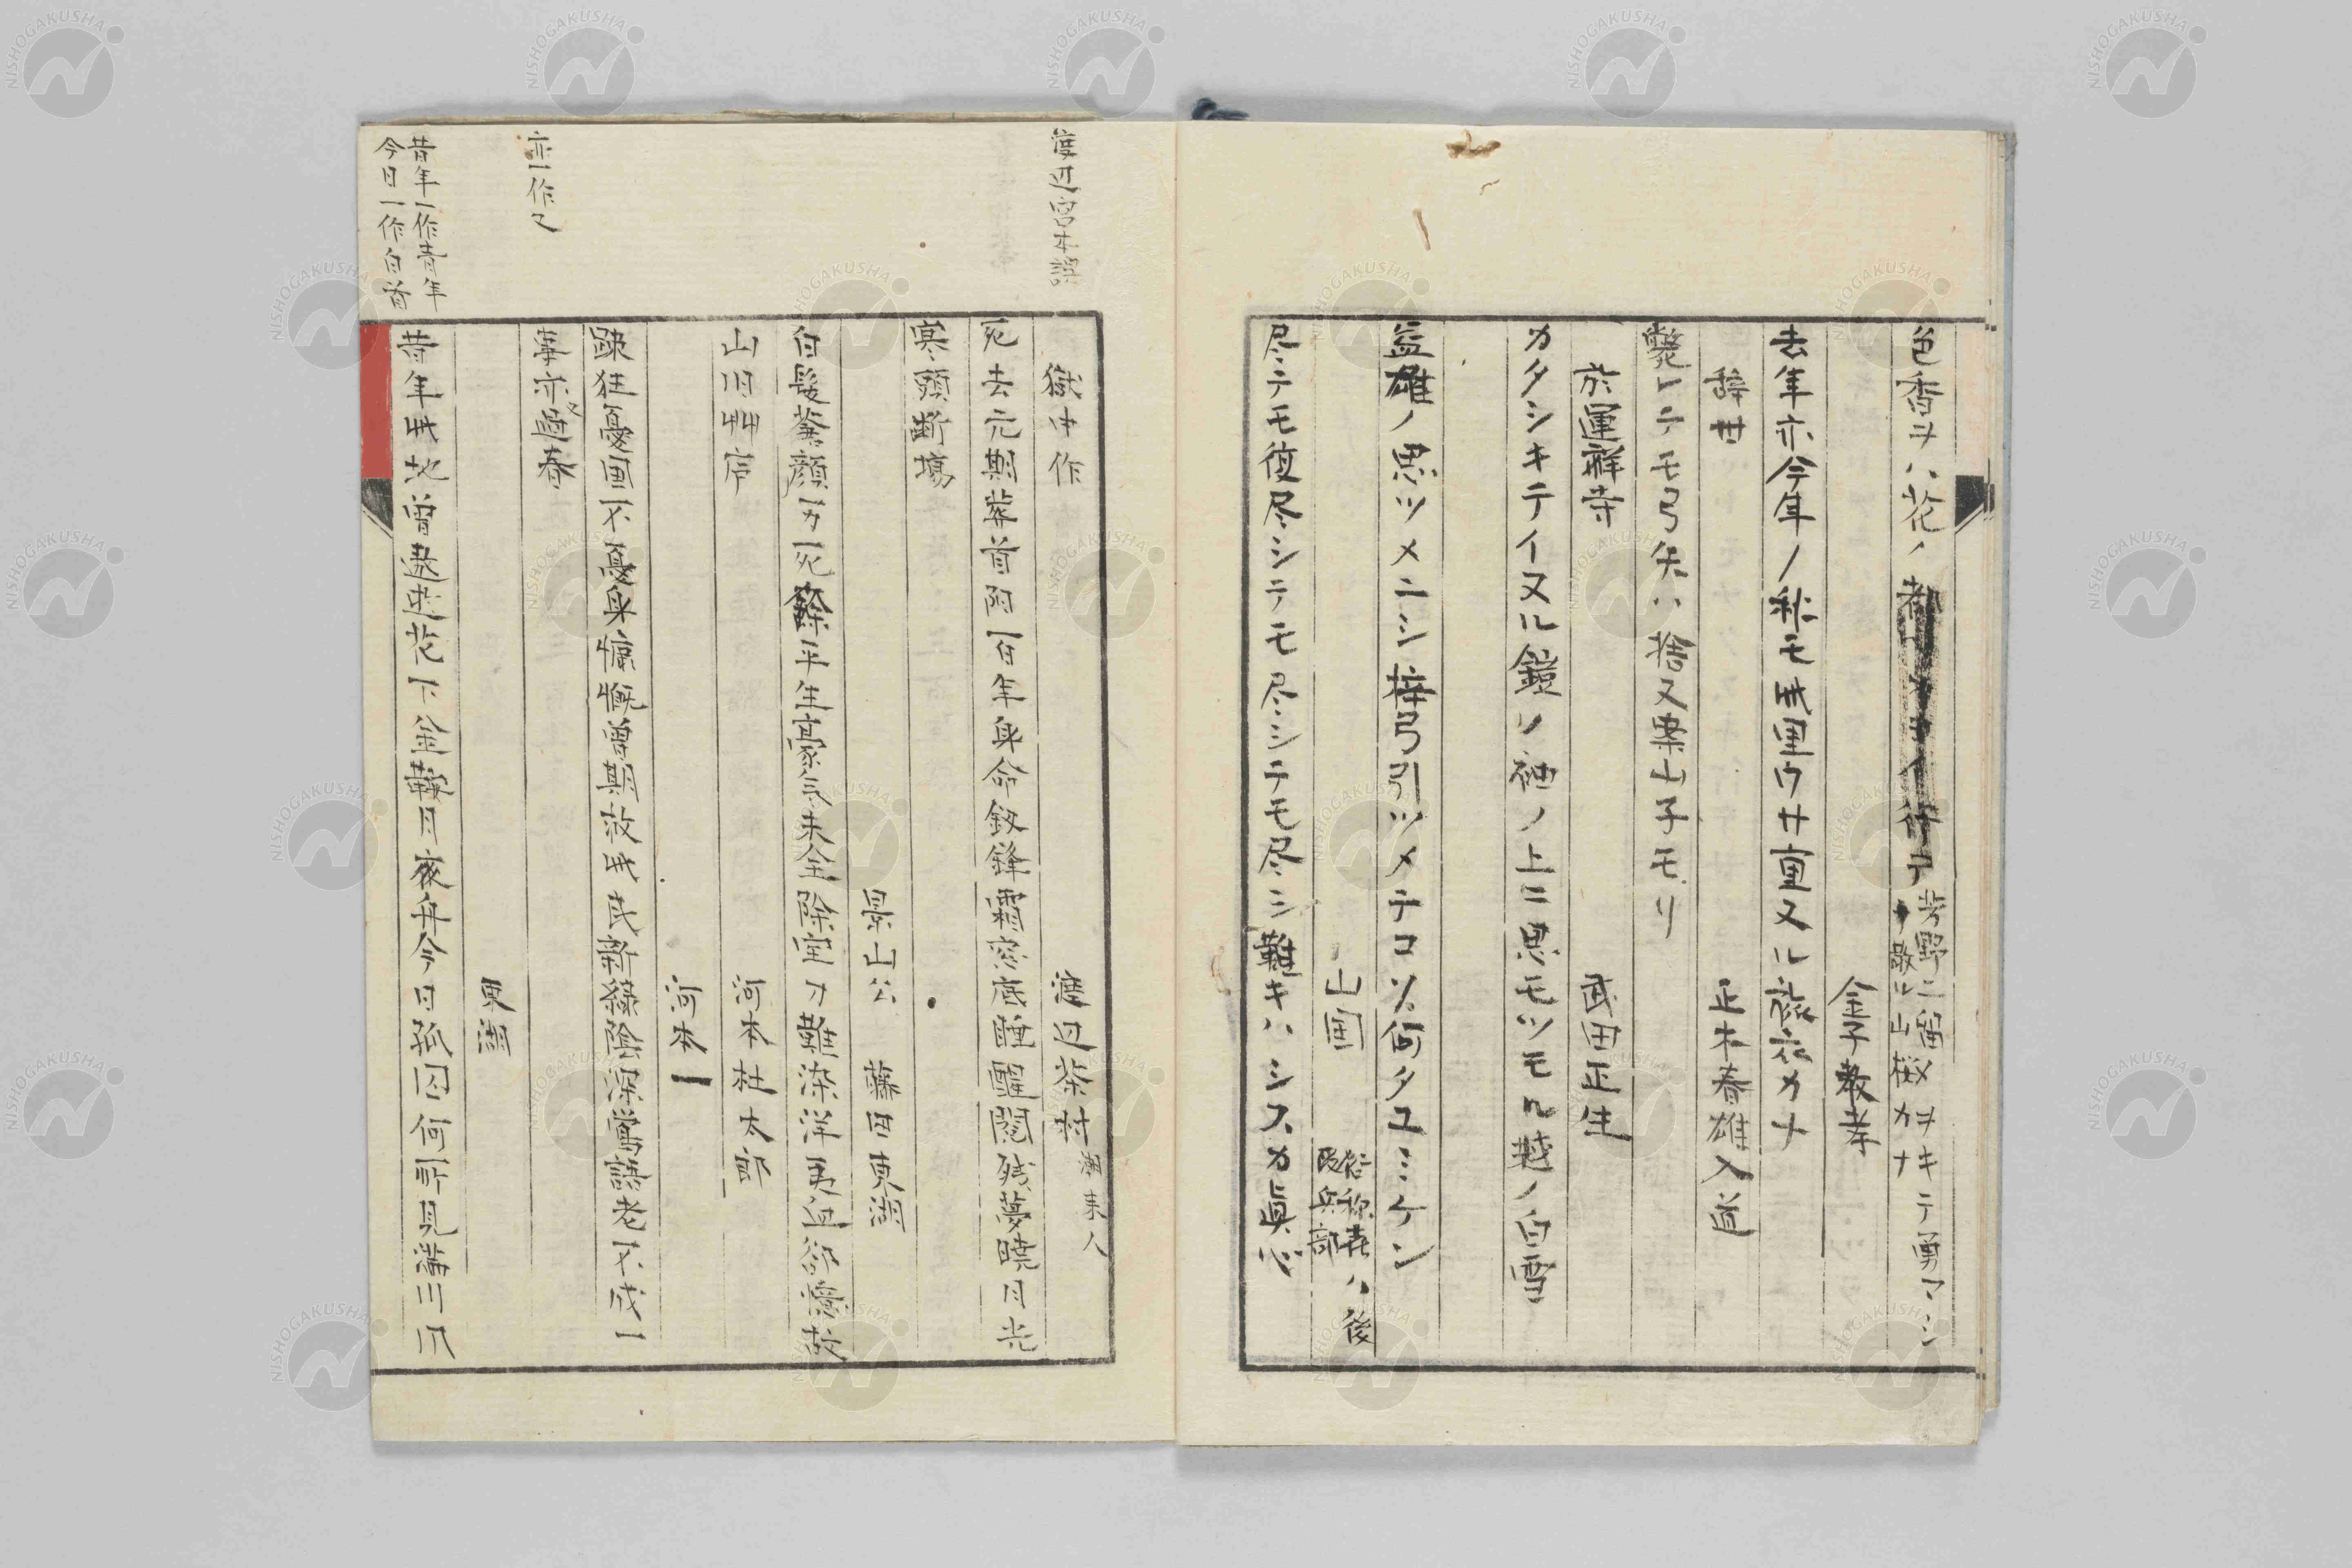 色香ヲハ花ノ
芳野ニ留メヲキテ勇マシ
ク散ル山桜カナ
金子教孝
去年亦今年ノ秋モ此里ウサ重又ル旅衣カナ
辞世
正木春雄入道
斃レテモ弓矢ハ捨又案山子モリ
於運祥寺
武田正生
カタシキテイ又ル鎧ノ袖ノ上ニ思モツモル越ノ白雪
益雄ノ思ツメニシ梓弓引ツメテコソ何タユミケン
山国
俗称喜八後
兵部
尽テモ復尽シテモ尽シテモ尽シ難キハシスカ真心
渡辺宮本誤
獄中作
渡辺茶村
死去元期葬首陽百年身命釼鋒霜窓底醒醒閲残夢暁月光
寒頭断場
景山公 藤田東湖
白髪蒼顔万死餘平生豪気未全除宝刀難染洋夷血却憶故
山旧艸廬
河本杜太郎
河本一
疎狂憂国不憂身慷慨曽期放此
新緑陰深鶯語老不成一
亦一作又
事亦過春
東湖
昔年一作青年
今日一作白首
昔年此地曽遨遊花下金鞍月夜舟今日孤囚何所見満川風